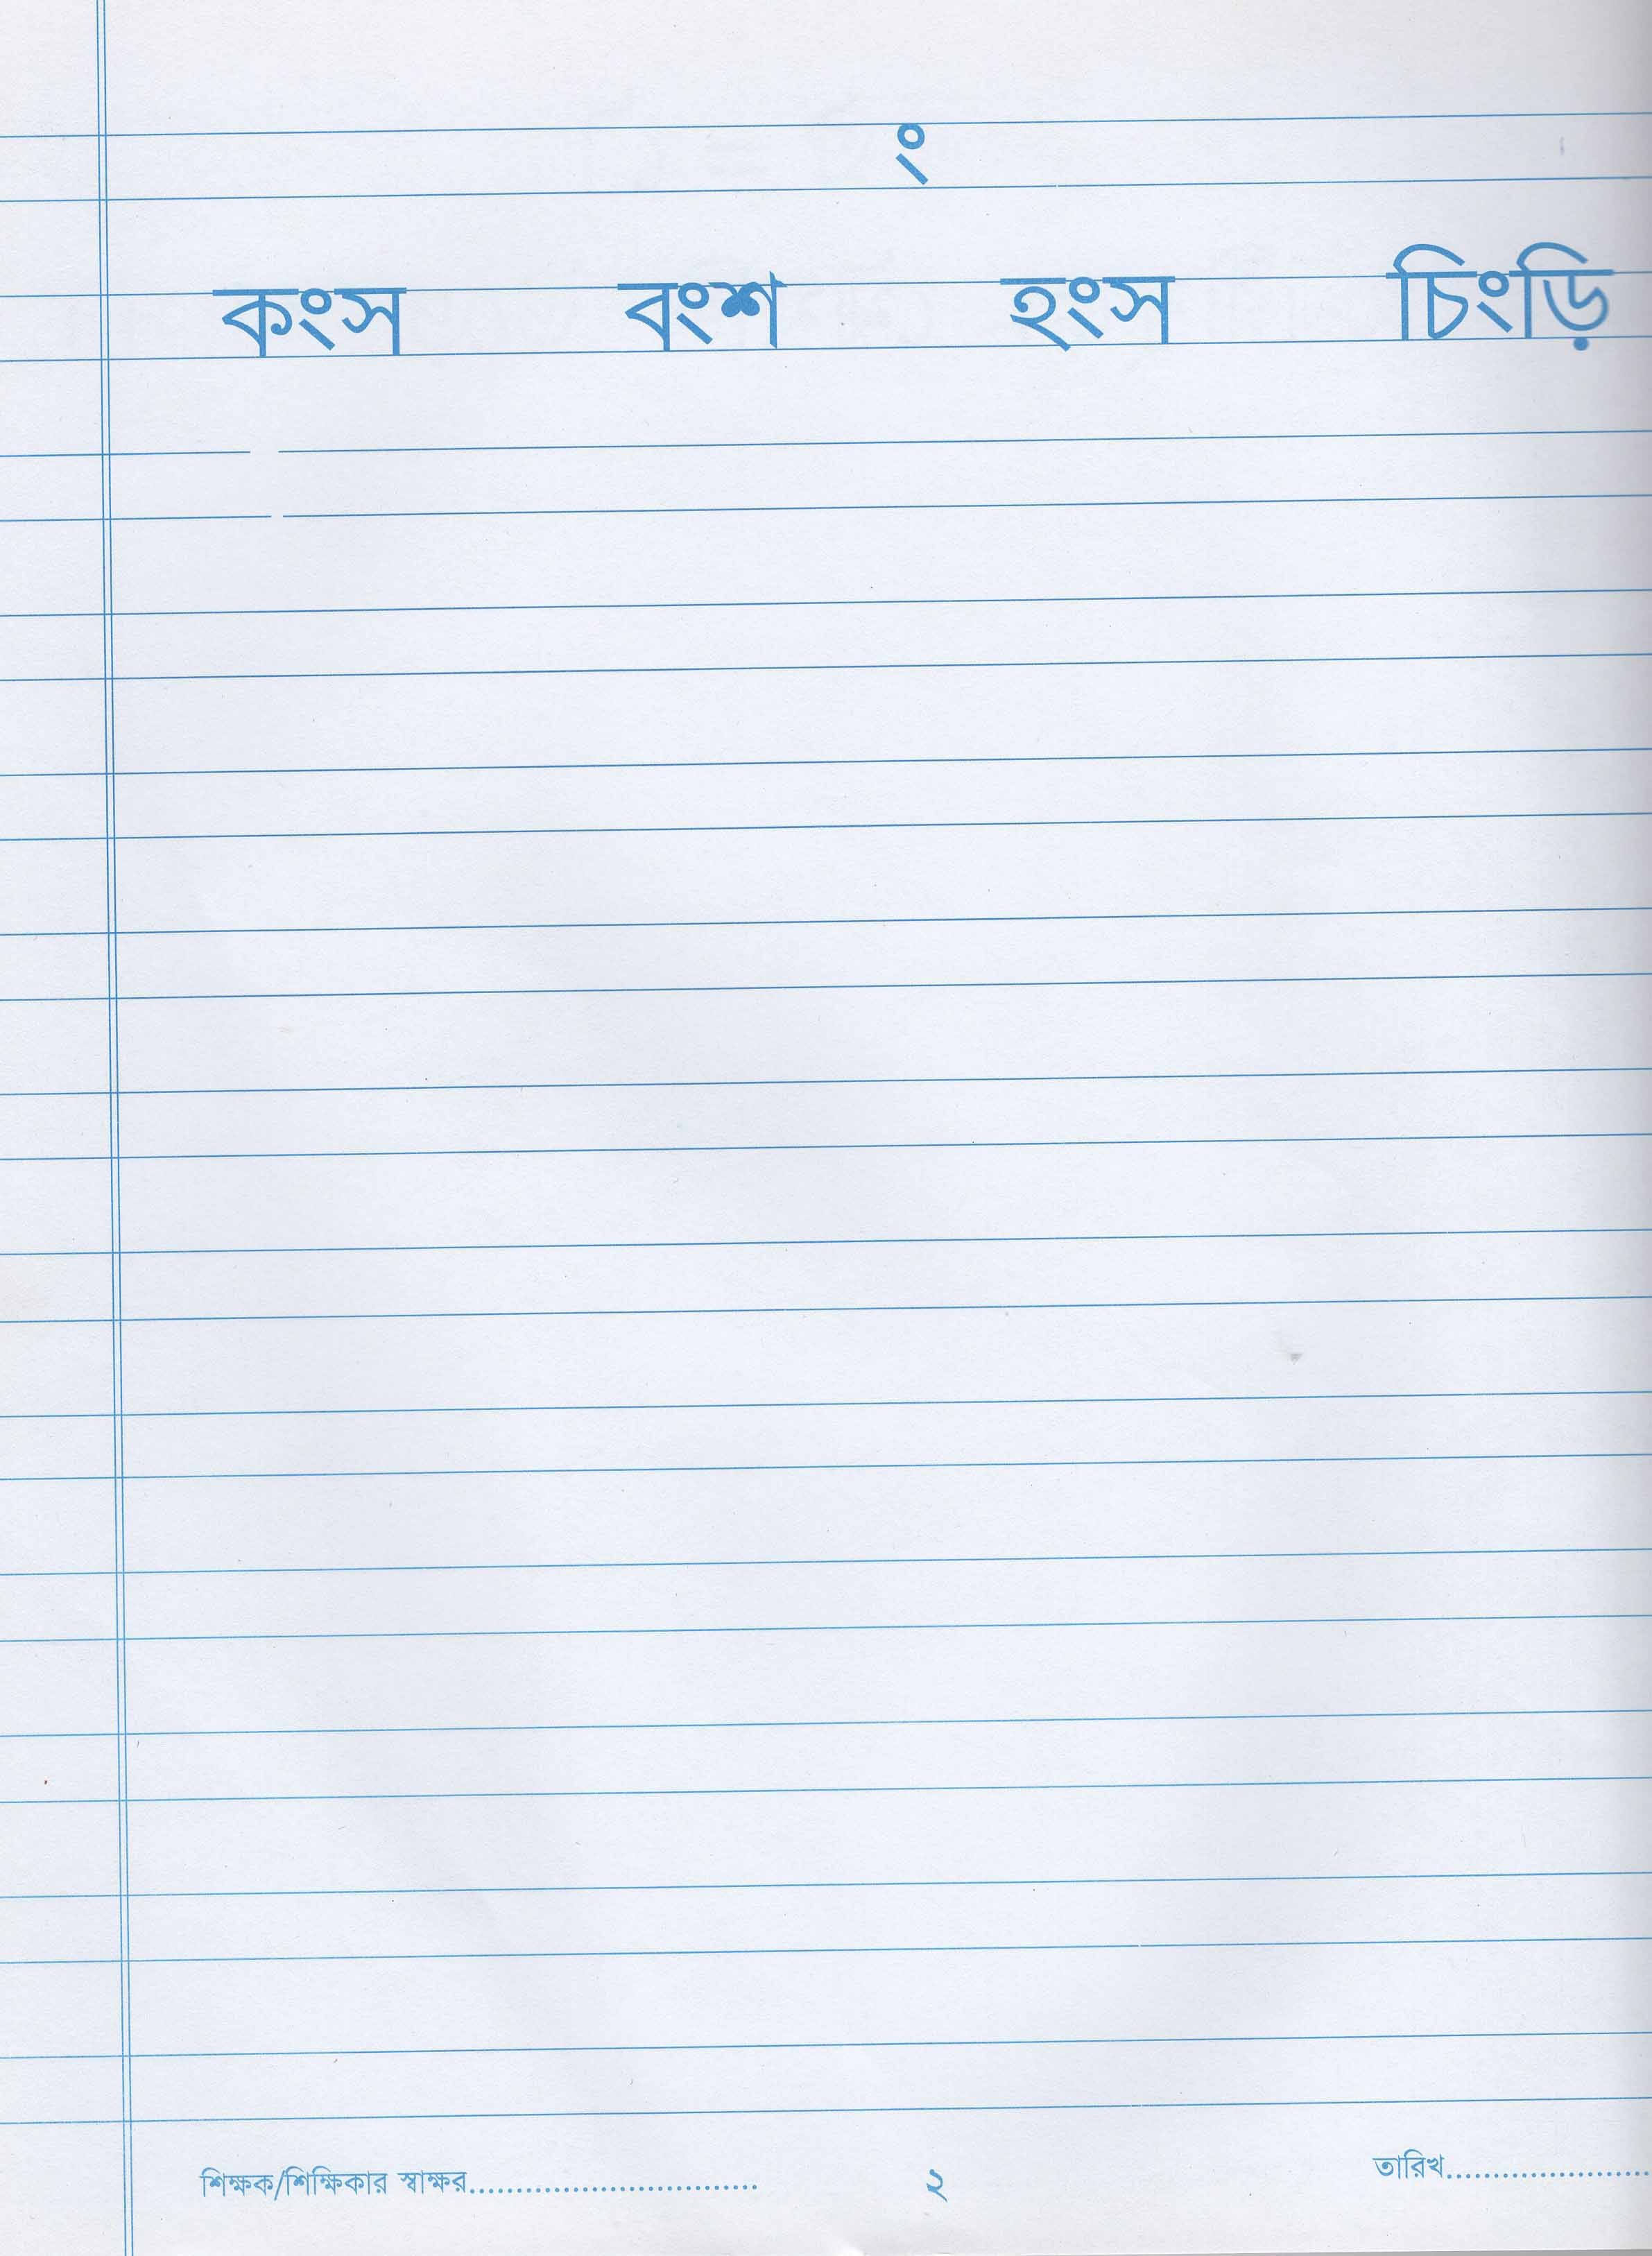 ং
কংস বংশ হংস চিংড়ি
শিক্ষক/শিক্ষিকার স্বাক্ষর.............................. ২ তারিখ.....................